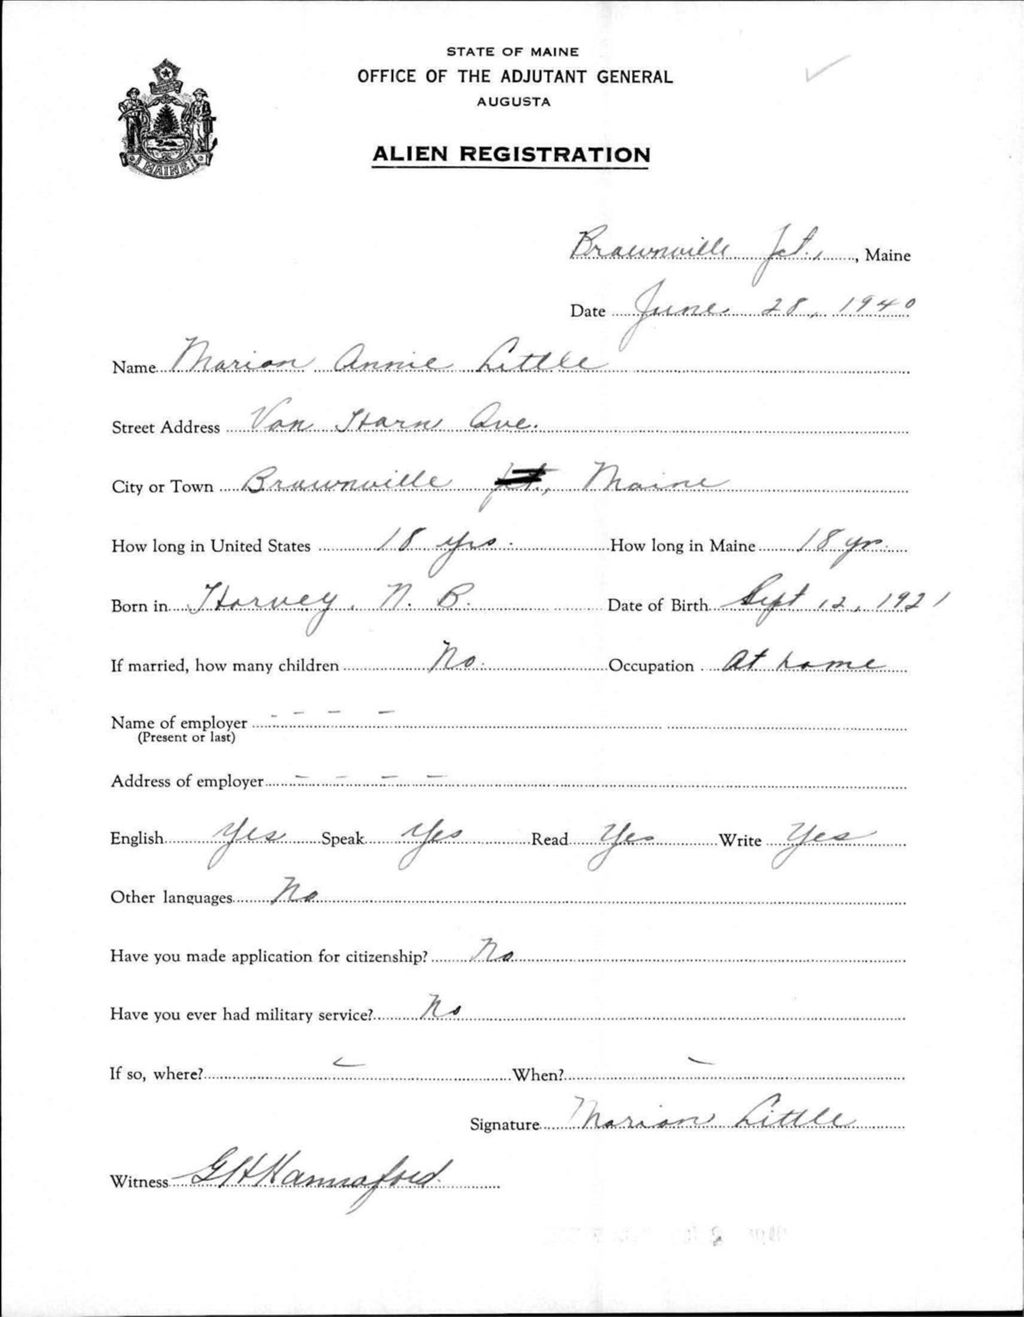 STATE OF MAINE
OFFICE OF THE ADJUTANT GENERAL
AUGUSTA
MAINE
ALIEN REGISTRATION
Brownville Jct., Maine
Date June 28, 1940
Name Marion Annie Little
Street Address Van Horn Ave.
City or Town Brownville Jct., Maine
How long in United States 18 yrs. How long in Maine 18 yr.
Born in Harvey, N. B. Date of Birth Sept 12, 1921
If married, how many children No. Occupation At home
Name of employer - - - -
(Present or last)
Address of employer - - - -
English Yes Speak Yes Read Yes Write Yes
Other languages No
Have you made application for citizenship? No
Have you ever had military service? No
If so, where? - When? -
Signature Marion Little
Witness G H Hannaford